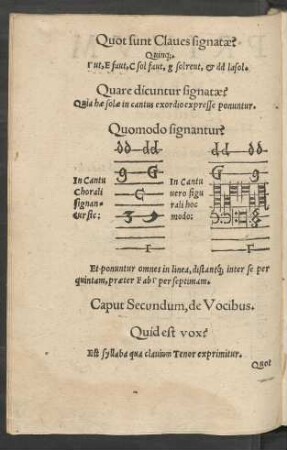 Quot sunt Claues signatæ?
Quinq;.
Γ ut, F faut, C sol faut, g solreut, & dd lasol.
Quare dicuntur signatæ?
Quia hæ solæ in cantus exordio expresse ponuntur.
Quomodo signantur?
dd dd
g G
In Cantu
Chorali
signan-
tur sic:
C
Γ
In Cantu
vero figu
rali hoc
modo:
dd dd
g G
Γ
Et ponuntur omnes in linea, distantq; inter se per
quintam, præter F ab Γ per septimam.
Caput Secundum, de Vocibus.
Quid est vox?
Est syllaba qua clauium Tenor exprimitur.
Quot